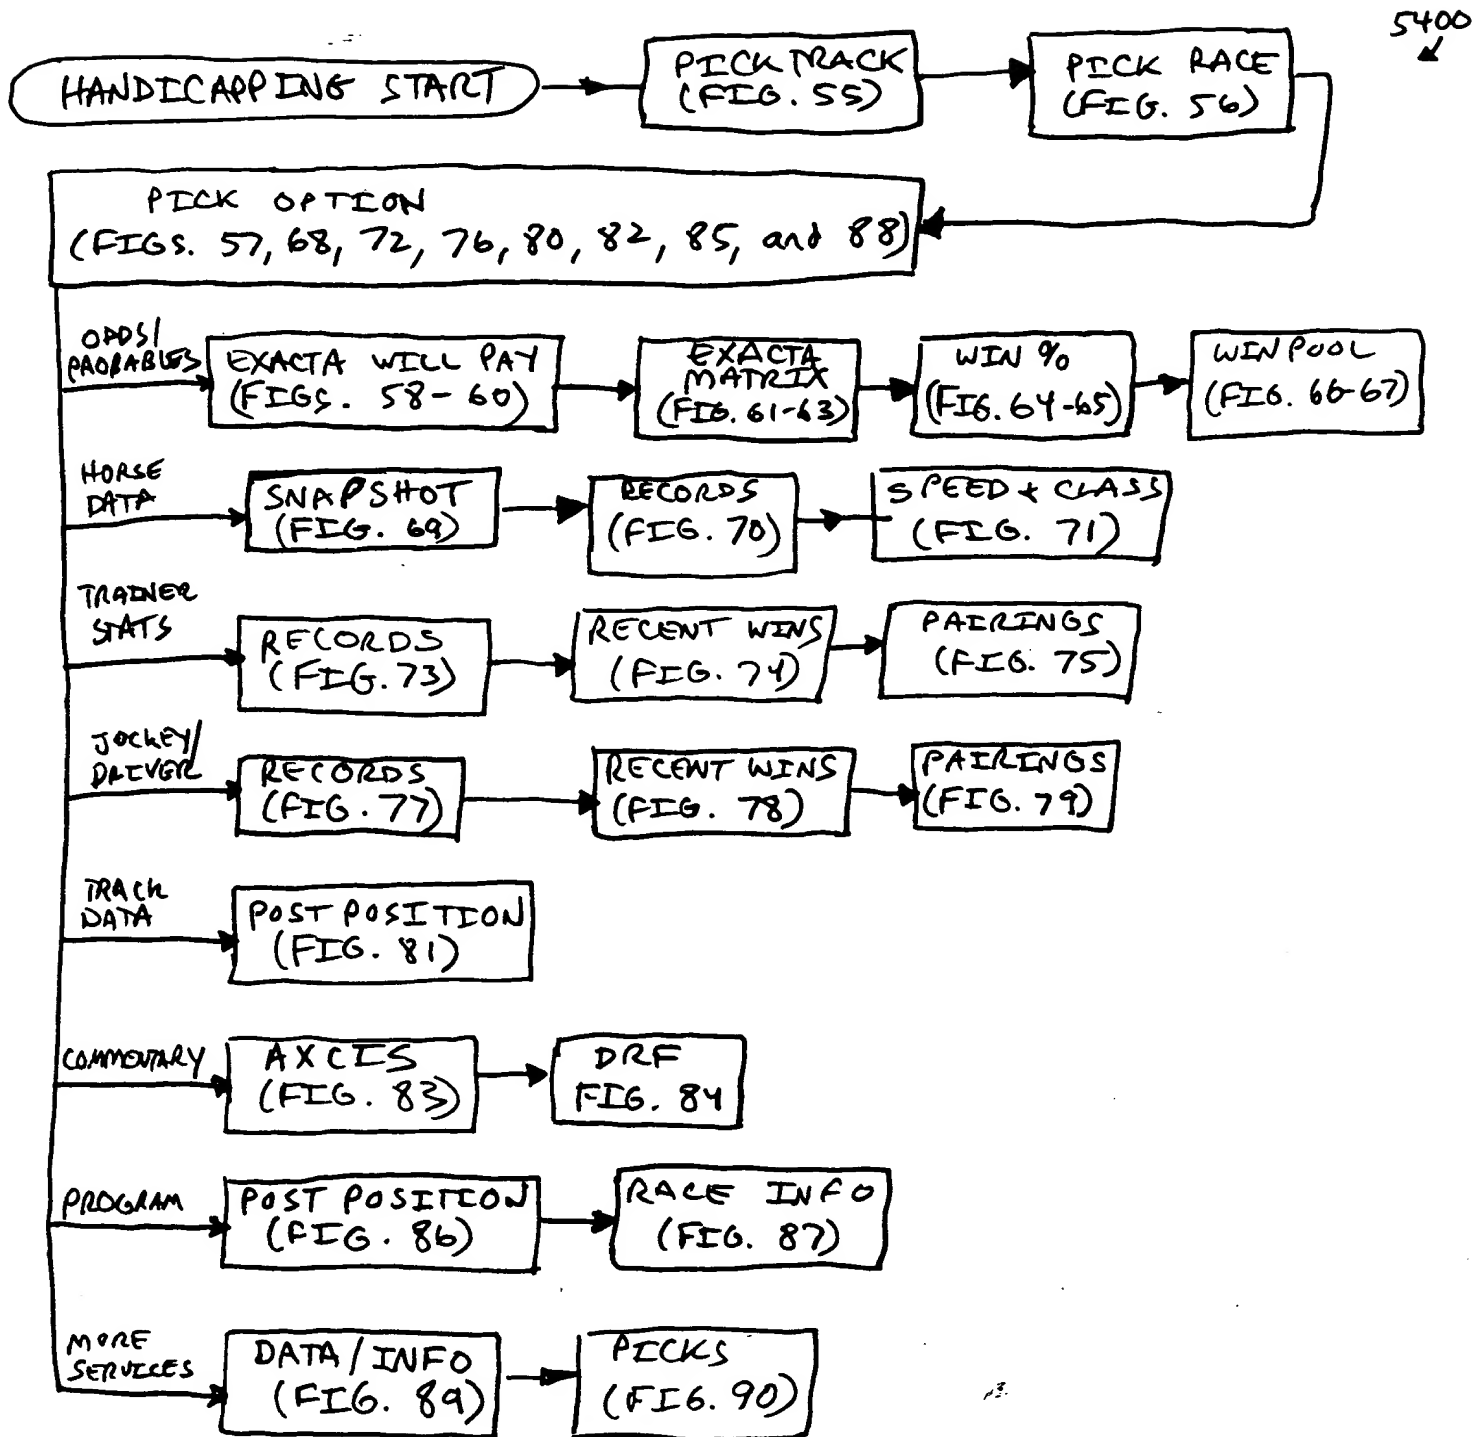 5400
HANDICAPPING START
PICK TRACK
(FIG. 55)
PICK RACE
(FIG. 56)
PICK OPTION
(FIGS. 57, 68, 72, 76, 80, 82, 85, and 88)
ODDS/
PROBABLES
EXACTA WILL PAY
(FIGS. 58-60)
EXACTA
MATRIX
(FIG. 61-63)
WIN %
(FIG. 64-65)
WIN POOL
(FIG. 66-67)
HORSE
DATA
SNAPSHOT
(FIG. 69)
RECORDS
(FIG. 70)
SPEED + CLASS
(FIG. 71)
TRAINER
STATS
RECORDS
(FIG. 73)
RECENT WINS
(FIG. 74)
PAIRINGS
(FIG. 75)
JOCKEY/
DRIVER
RECORDS
(FIG. 77)
RECENT WINS
(FIG. 78)
PAIRINGS
(FIG. 79)
TRACK
DATA
POST POSITION
(FIG. 81)
COMMENTARY
AXCIS
(FIG. 83)
DRF
FIG. 84
PROGRAM
POST POSITION
(FIG. 86)
RACE INFO
(FIG. 87)
MORE
SERVICES
DATA/INFO
(FIG. 89)
PICKS
(FIG. 90)